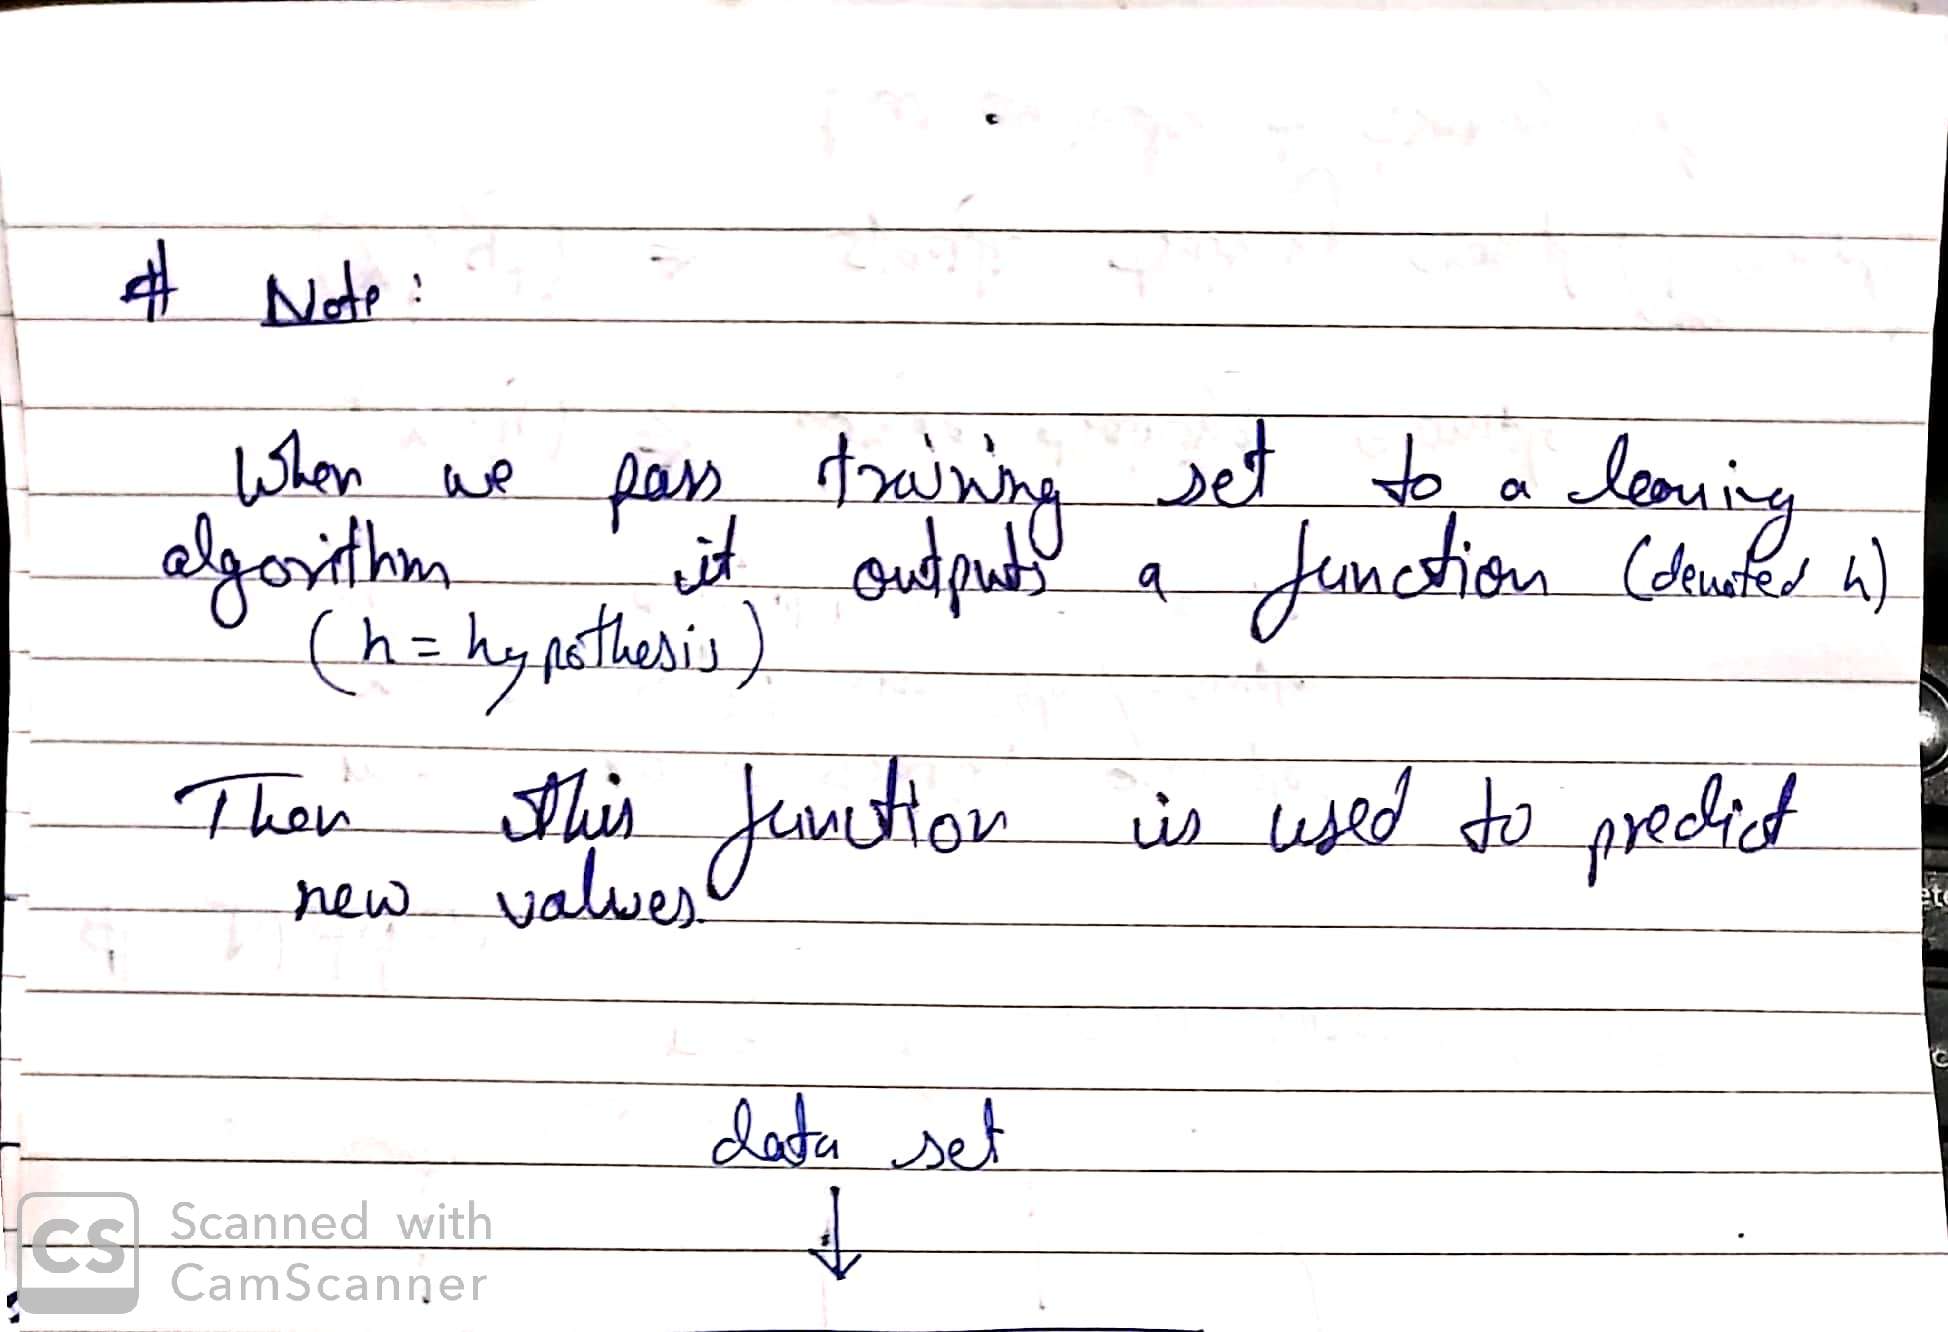 # Note:
When we pass training set to a learning
algorithm it outputs a function (denoted h)
(h = hypothesis)
Then this function is used to predict
new values.
data set
↓
CS Scanned with
CamScanner